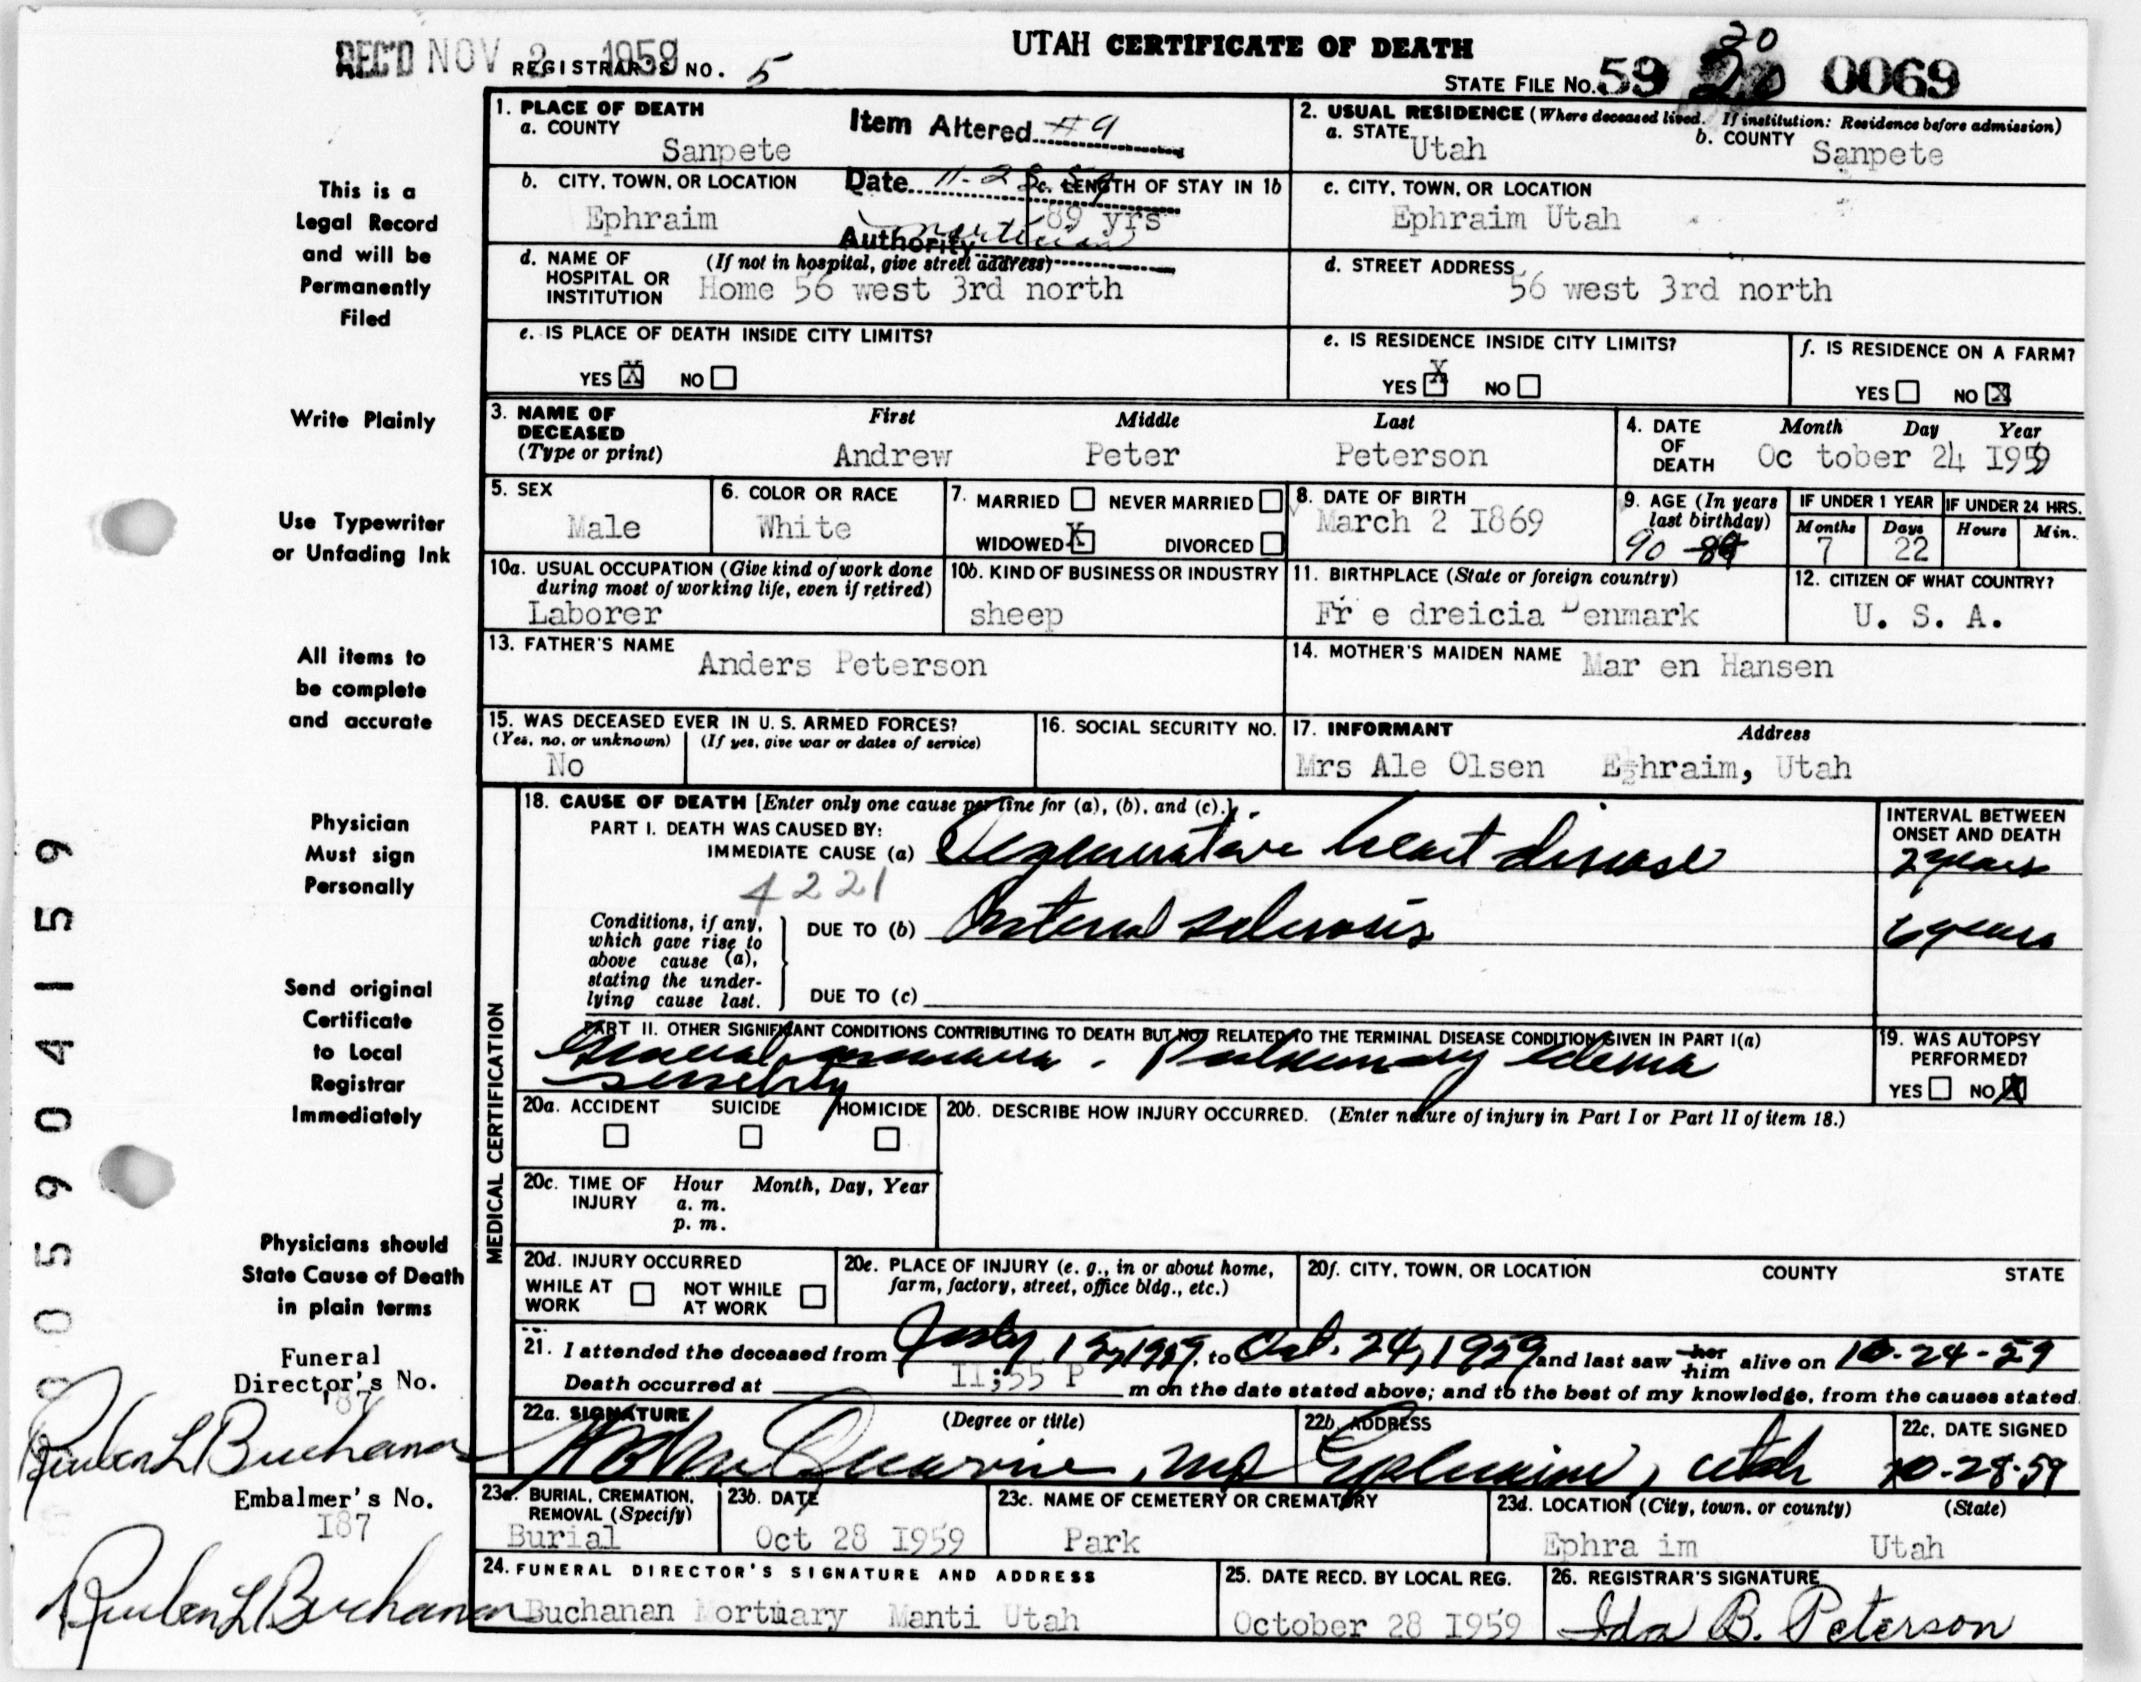 UTAH CERTIFICATE OF DEATH
REC'D NOV 2 1959 REGISTRAR'S NO. 5
STATE FILE No. 59 20 0069
20
1. PLACE OF DEATH
a. COUNTY
Sanpete
Item Altered #9
2. USUAL RESIDENCE (Where deceased lived. If institution: Residence before admission)
a. STATE Utah b. COUNTY Sanpete
b. CITY, TOWN, OR LOCATION
Ephraim
Date 11-2-59
c. LENGTH OF STAY IN 1b
89 yrs
Authority mortician
c. CITY, TOWN, OR LOCATION
Ephraim Utah
d. NAME OF HOSPITAL OR INSTITUTION (If not in hospital, give street address)
Home 56 west 3rd north
d. STREET ADDRESS
56 west 3rd north
e. IS PLACE OF DEATH INSIDE CITY LIMITS?
YES X NO
e. IS RESIDENCE INSIDE CITY LIMITS?
YES X NO
f. IS RESIDENCE ON A FARM?
YES NO X
3. NAME OF DECEASED (Type or print)
First Middle Last
Andrew Peter Peterson
4. DATE OF DEATH Month Day Year
Oc tober 24 I959
5. SEX
Male
6. COLOR OR RACE
White
7. MARRIED NEVER MARRIED
WIDOWED X DIVORCED
8. DATE OF BIRTH
March 2 I869
9. AGE (In years last birthday)
90 89
IF UNDER 1 YEAR IF UNDER 24 HRS.
Months Days Hours Min.
7 22
10a. USUAL OCCUPATION (Give kind of work done during most of working life, even if retired)
Laborer
10b. KIND OF BUSINESS OR INDUSTRY
sheep
11. BIRTHPLACE (State or foreign country)
Fr e dreicia Denmark
12. CITIZEN OF WHAT COUNTRY?
U. S. A.
13. FATHER'S NAME
Anders Peterson
14. MOTHER'S MAIDEN NAME
Mar en Hansen
15. WAS DECEASED EVER IN U. S. ARMED FORCES?
(Yes, no, or unknown) (If yes, give war or dates of service)
No
16. SOCIAL SECURITY NO.
17. INFORMANT Address
Mrs Ale Olsen Ephraim, Utah
MEDICAL CERTIFICATION
18. CAUSE OF DEATH [Enter only one cause per line for (a), (b), and (c).]
INTERVAL BETWEEN ONSET AND DEATH
PART I. DEATH WAS CAUSED BY:
IMMEDIATE CAUSE (a) Degenerative heart disease 2 years
4221
Conditions, if any, which gave rise to above cause (a), stating the underlying cause last.
DUE TO (b) Arterial sclerosis 6 years
DUE TO (c)
PART II. OTHER SIGNIFICANT CONDITIONS CONTRIBUTING TO DEATH BUT NOT RELATED TO THE TERMINAL DISEASE CONDITION GIVEN IN PART I(a)
General anasarca. Pulmonary edema
senility
19. WAS AUTOPSY PERFORMED?
YES NO X
20a. ACCIDENT SUICIDE HOMICIDE
20b. DESCRIBE HOW INJURY OCCURRED. (Enter nature of injury in Part I or Part II of item 18.)
20c. TIME OF INJURY Hour Month, Day, Year
a. m.
p. m.
20d. INJURY OCCURRED
WHILE AT WORK NOT WHILE AT WORK
20e. PLACE OF INJURY (e. g., in or about home, farm, factory, street, office bldg., etc.)
20f. CITY, TOWN, OR LOCATION COUNTY STATE
21. I attended the deceased from July 15, 1959, to Oct. 24, 1959 and last saw her him alive on 10-24-59
Death occurred at II;55 P m on the date stated above; and to the best of my knowledge, from the causes stated.
22a. SIGNATURE (Degree or title)
MD
22b. ADDRESS
Ephraim, Utah
22c. DATE SIGNED
10-28-59
23a. BURIAL, CREMATION, REMOVAL (Specify)
Burial
23b. DATE
Oct 28 I959
23c. NAME OF CEMETERY OR CREMATORY
Park
23d. LOCATION (City, town, or county) (State)
Ephra im Utah
24. FUNERAL DIRECTOR'S SIGNATURE AND ADDRESS
Buchanan Mortuary Manti Utah
25. DATE RECD. BY LOCAL REG.
October 28 I959
26. REGISTRAR'S SIGNATURE
Ida B. Peterson
This is a
Legal Record
and will be
Permanently
Filed
Write Plainly
Use Typewriter
or Unfading Ink
All items to
be complete
and accurate
Physician
Must sign
Personally
Send original
Certificate
to Local
Registrar
Immediately
Physicians should
State Cause of Death
in plain terms
Funeral
Director's No.
187
Reuben L Buchanan
Embalmer's No.
I87
Reuben L Buchanan
005904159